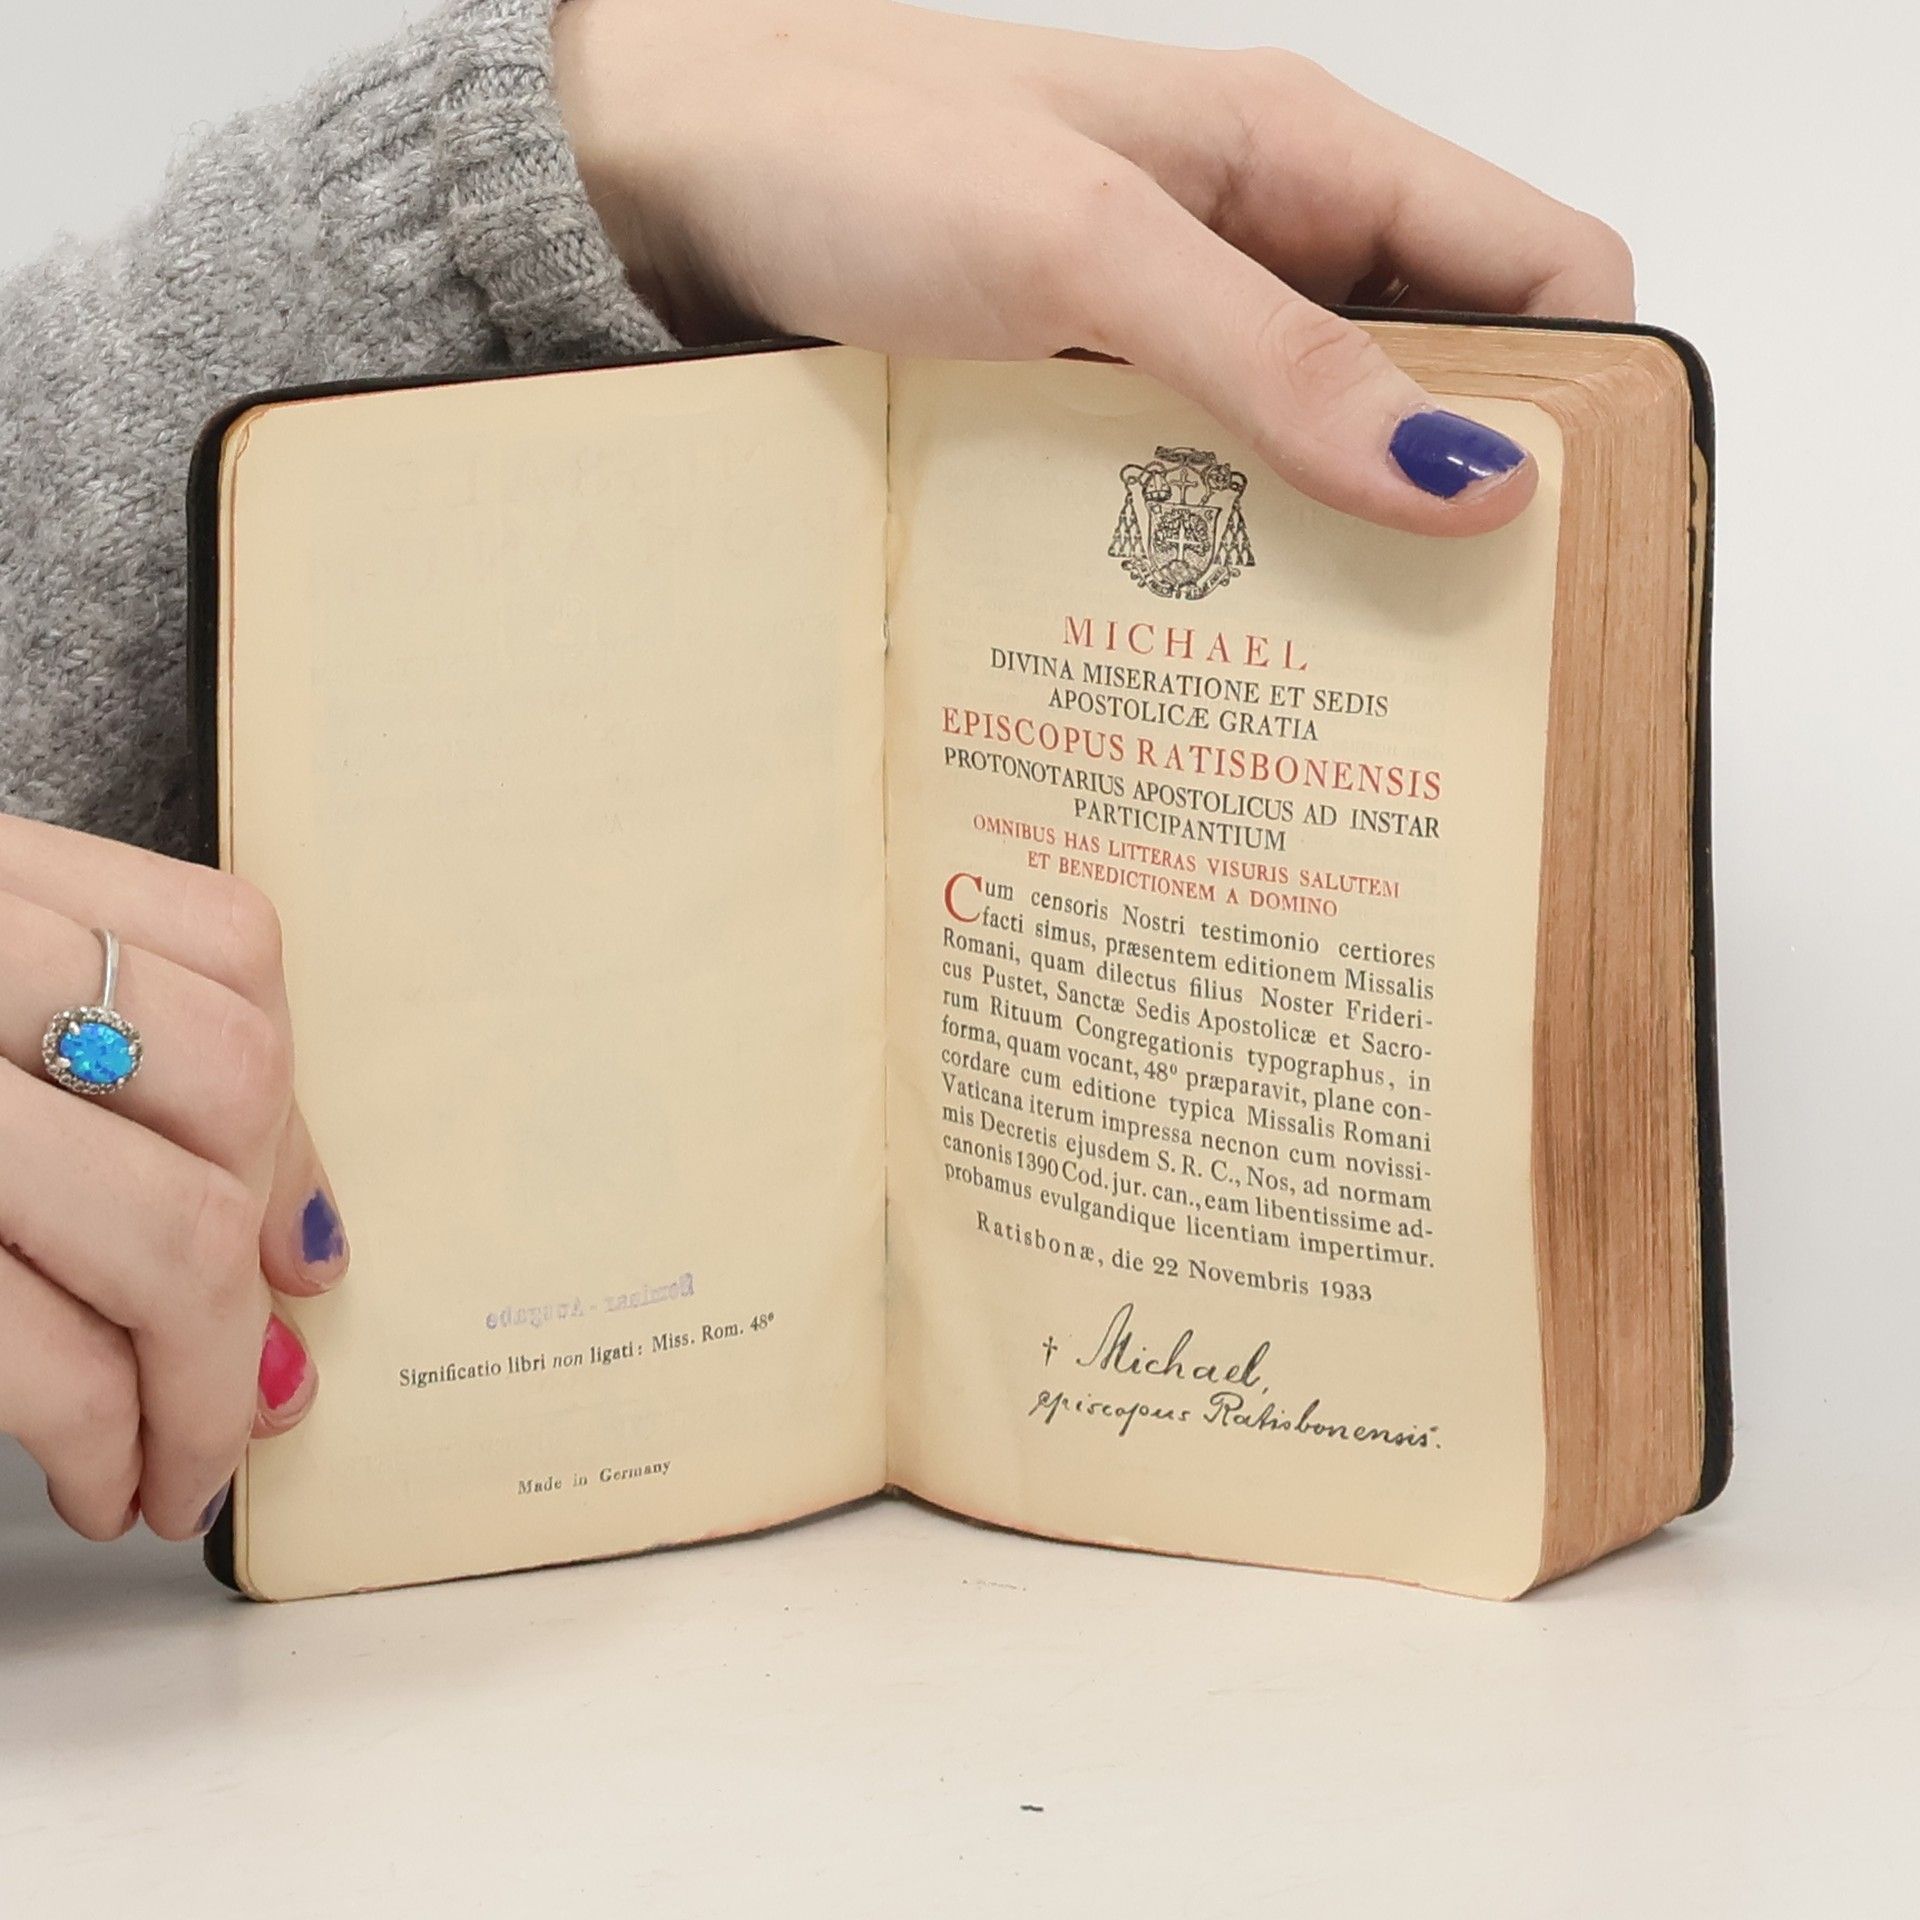 Significatio libri non ligati: Miss. Rom. 48°
Made in Germany
MICHAEL
DIVINA MISERATIONE ET SEDIS
APOSTOLICÆ GRATIA
EPISCOPUS RATISBONENSIS
PROTONOTARIUS APOSTOLICUS AD INSTAR
PARTICIPANTIUM
OMNIBUS HAS LITTERAS VISURIS SALUTEM
ET BENEDICTIONEM A DOMINO
Cum censoris Nostri testimonio certiores
facti simus, præsentem editionem Missalis
Romani, quam dilectus filius Noster Frideri-
cus Pustet, Sanctæ Sedis Apostolicæ et Sacro-
rum Rituum Congregationis typographus, in
forma, quam vocant, 48° præparavit, plane con-
cordare cum editione typica Missalis Romani
Vaticana iterum impressa necnon cum novissi-
mis Decretis ejusdem S. R. C., Nos, ad normam
canonis 1390 Cod. jur. can., eam libentissime ad-
probamus evulgandique licentiam impertimur.
Ratisbonæ, die 22 Novembris 1933
† Michael,
episcopus Ratisbonensis.